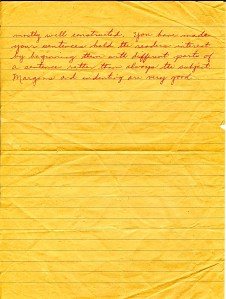 mostly well constructed. You have made
your sentences hold the readers interest
by beginning them with different parts of
a sentence rather than always the subject
Margins and indenting are very good